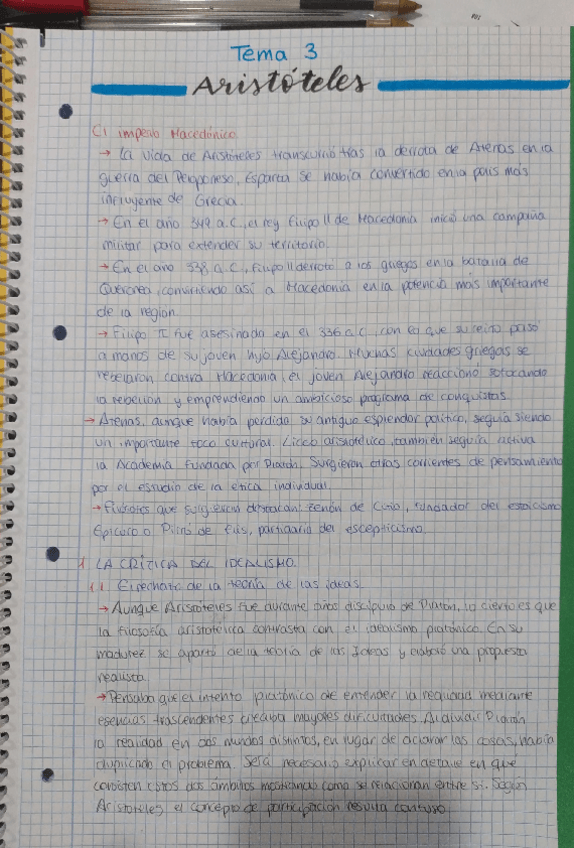 Tema 3
Aristóteles
El imperio Macedónico
→ La vida de Aristóteles transcurrió tras la derrota de Atenas en la
guerra del Peloponeso, Esparta se había convertido en la polis más
influyente de Grecia.
→ En el año 349 a.C, el rey Filipo II de Macedonia inició una campaña
militar para extender su territorio.
→ En el año 338 a.C, Filipo II derrotó a los griegos en la batalla de
Queronea, convirtiendo así a Macedonia en la potencia más importante
de la región.
→ Filipo II fue asesinado en el 336 a.C, con lo que su reino pasó
a manos de su joven hijo Alejandro. Muchas ciudades griegas se
rebelaron contra Macedonia, el joven Alejandro reaccionó sofocando
la rebelión y emprendiendo un ambicioso programa de conquistas.
→ Atenas, aunque había perdido su antiguo esplendor político, seguía siendo
un importante foco cultural. Liceo aristotélico, también seguía activa
la Academia fundada por Platón. Surgieron otras corrientes de pensamiento
por el estudio de la ética individual.
→ Filósofos que surgieron destacan: Zenón de Citio, fundador del estoicismo
Epicuro o Pirrón de Elis, partidario del escepticismo.
1. LA CRÍTICA DEL IDEALISMO.
1.1. El rechazo de la teoría de las ideas.
→ Aunque Aristóteles fue durante años discípulo de Platón, lo cierto es que
la filosofía aristotélica contrasta con el idealismo platónico. En su
madurez se apartó de la teoría de las Ideas y elaboró una propuesta
realista.
→ Pensaba que el intento platónico de entender la realidad mediante
esencias trascendentes creaba mayores dificultades. Al dividir Platón
la realidad en dos mundos distintos, en lugar de aclarar las cosas, había
duplicado el problema. Será necesario explicar en detalle en que
consisten estos dos ámbitos mostrando como se relacionan entre sí. Según
Aristóteles el concepto de participación resulta confuso.